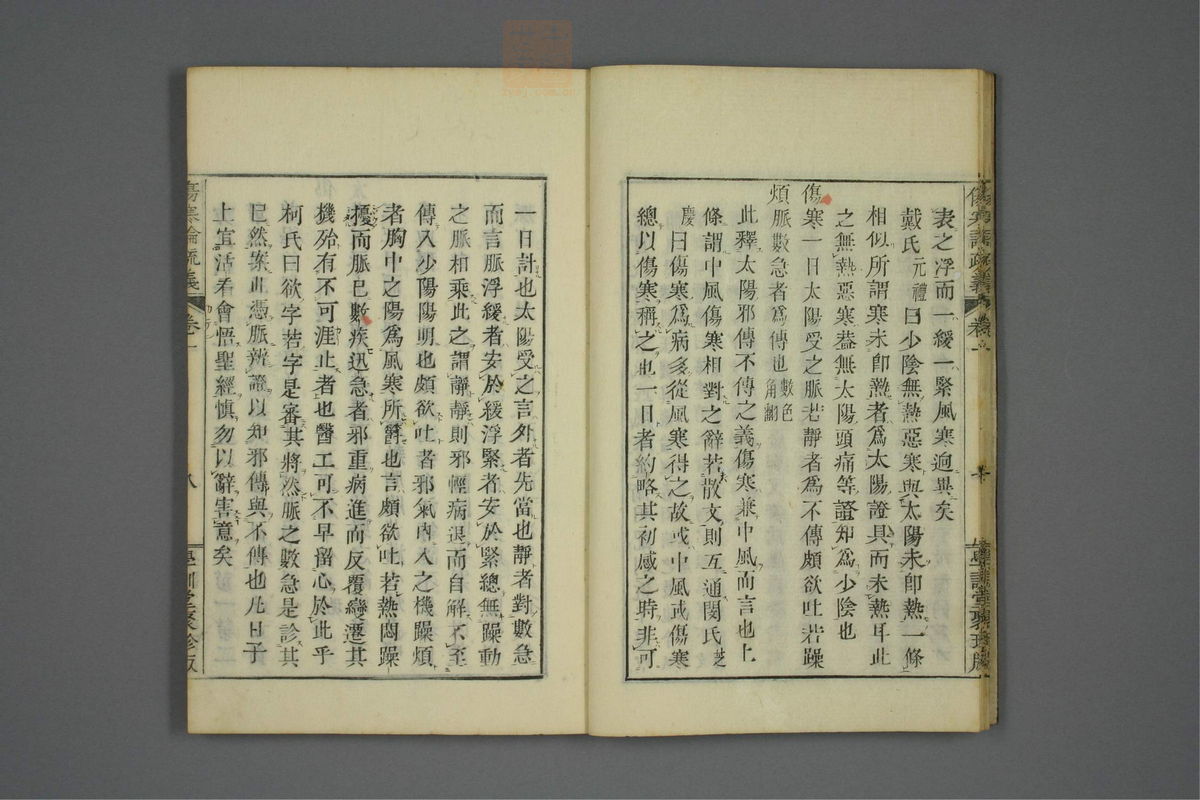 表之浮而一緩一緊風寒逈異矣
戴氏元禮曰少陰無熱惡寒與太陽未卽熱一條
相似所謂寒未卽熱者爲太陽證具而未熱耳此
之無熱惡寒葢無太陽頭痛等證知爲少陰也
傷寒一日太陽受之脈若靜者爲不傳頗欲吐若躁
煩脈數急者爲傳也數色角翻
此釋太陽邪傳不傳之義傷寒兼中風而言也上
條謂中風傷寒相對之辭若散文則互通閔氏芝
慶曰傷寒爲病多從風寒得之故或中風或傷寒
總以傷寒稱之也一日者約略其初感之時非可
傷寒論疏義
卷一
學訓堂聚珍版
一日計也太陽受之言外者先當也靜者對數急
而言脈浮緩者安於緩浮緊者安於緊總無躁動
之脈相乘此之謂靜靜則邪輕病退而自解不至
傳入少陽陽明也頗欲吐者邪氣內入之機躁煩
者胸中之陽爲風寒所欝也言頗欲吐若熱悶躁
擾而脈已數疾迅急者邪重病進而反覆變遷其
機殆有不可涯止者也醫工可不早留心於此乎
柯氏曰欲字若字是審其將然脈之數急是診其
已然案此憑脈辨證以知邪傳與不傳也凡日子
上宜活看會悟聖經慎勿以辭害意矣
傷寒論疏義
卷一
八
學訓堂聚珍版